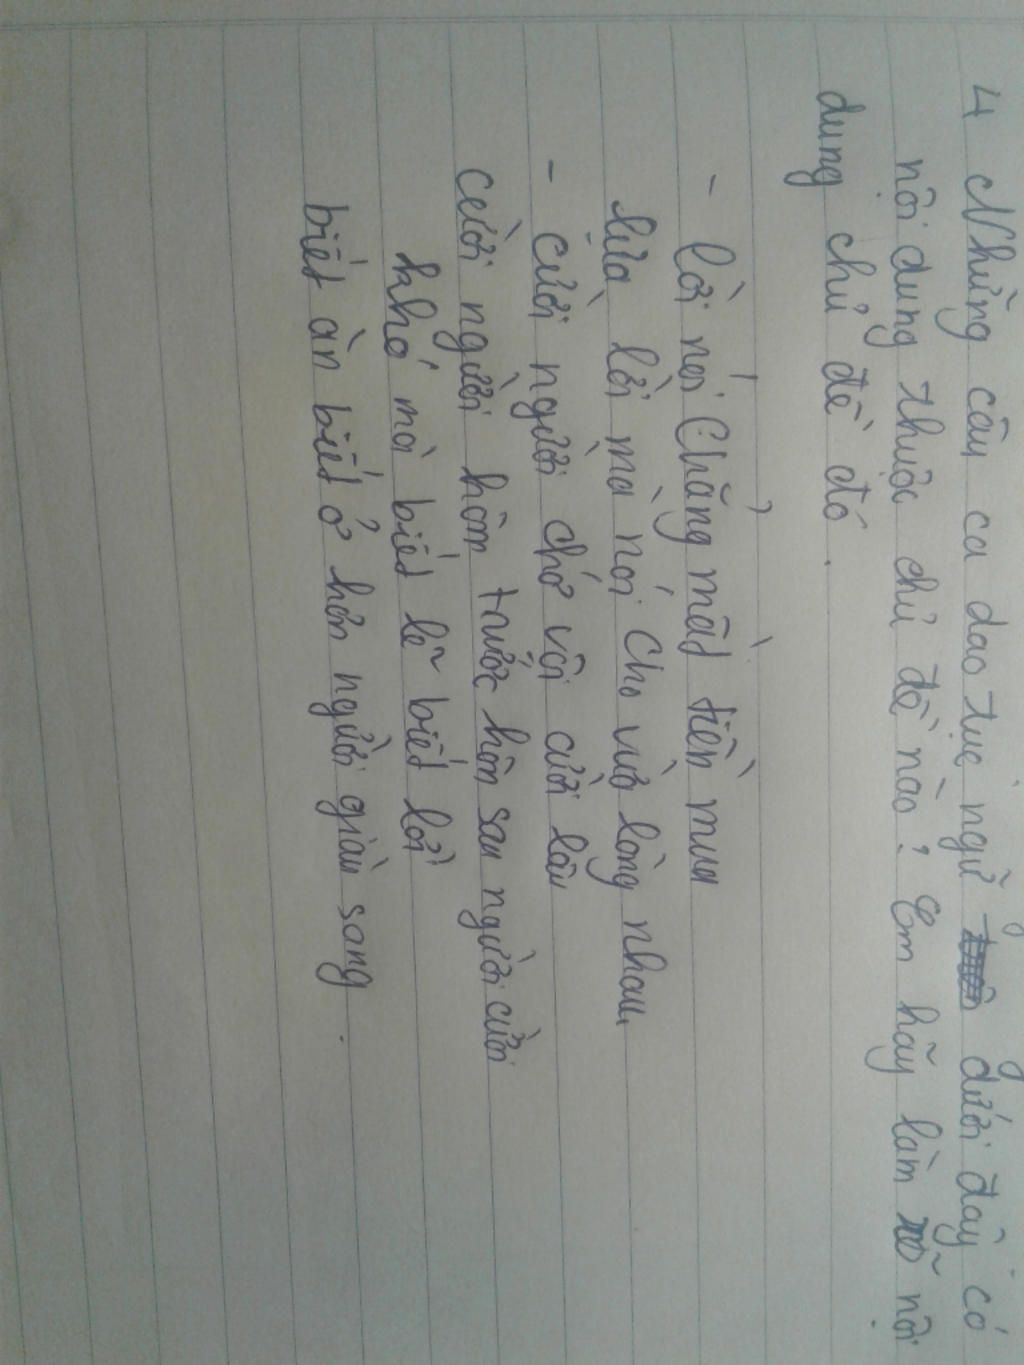 4 Những câu ca dao tục ngữ dưới đây có
nội dung thuộc chủ đề nào? Em hãy làm rõ nội
dung chủ đề đó.
- Lời nói Chẳng mất tiền mua
lựa lời mà nói cho vừa lòng nhau
- cười người chớ vội cười lâu
cười người hôm trước hôm sau người cười
khó mà biết lẽ biết lời
biết ăn biết ở hơn người giàu sang.